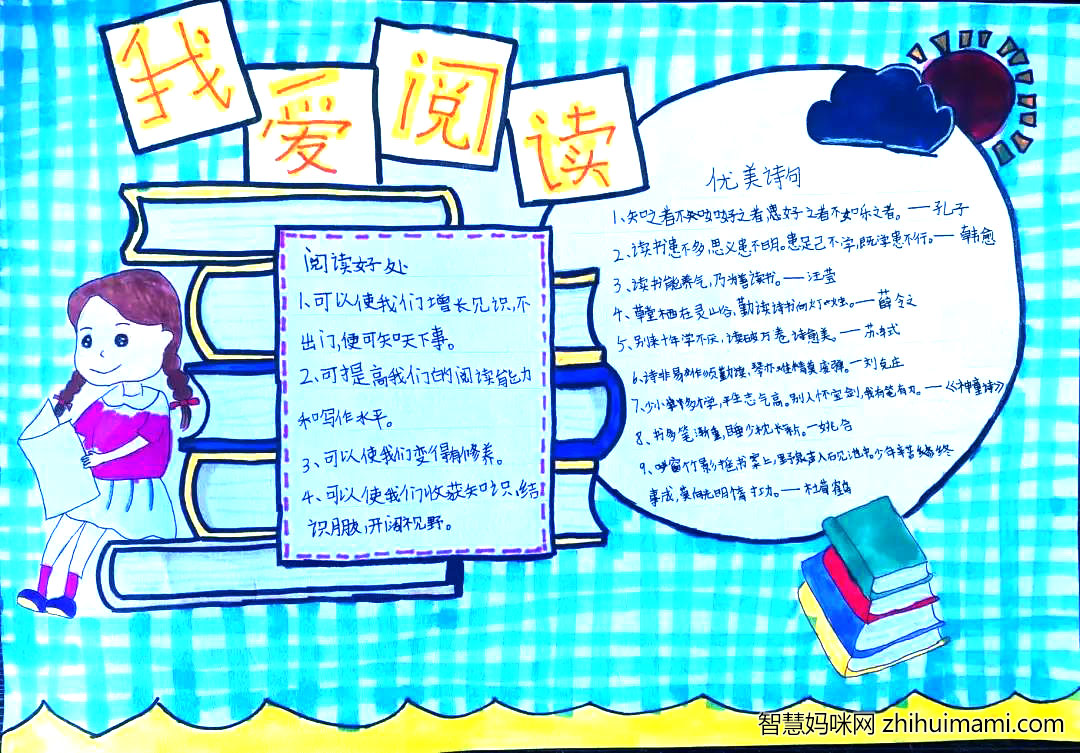 我爱阅读
阅读好处
1、可以使我们增长见识,不
出门,便可知天下事。
2、可提高我们的阅读能力
和写作水平。
3、可以使我们变得有修养。
4、可以使我们收获知识,结
识朋友,开阔视野。
优美诗句
1、知之者不如好之者,好之者不如乐之者。——孔子
2、读书患不多,思义患不明。患足己不学,既学患不行。——韩愈
3、读书能养气,乃为善读书。——汪莹
4、草堂栖在灵山谷,勤读诗书向灯烛。——薛令之
5、别来十年学不厌,读破万卷诗愈美。——苏轼
6、诗非易作须勤
7、少小多才学,平生志气高。别人怀宝剑,我有笔有刀。——《神童诗》
8、书多笔渐重,睡少枕长新。——姚合
9、窗竹影摇书案上,野泉声入砚池中。少年辛苦终
事成,莫向光明惰寸功。——杜荀鹤
智慧妈咪网 zhihuimami.com